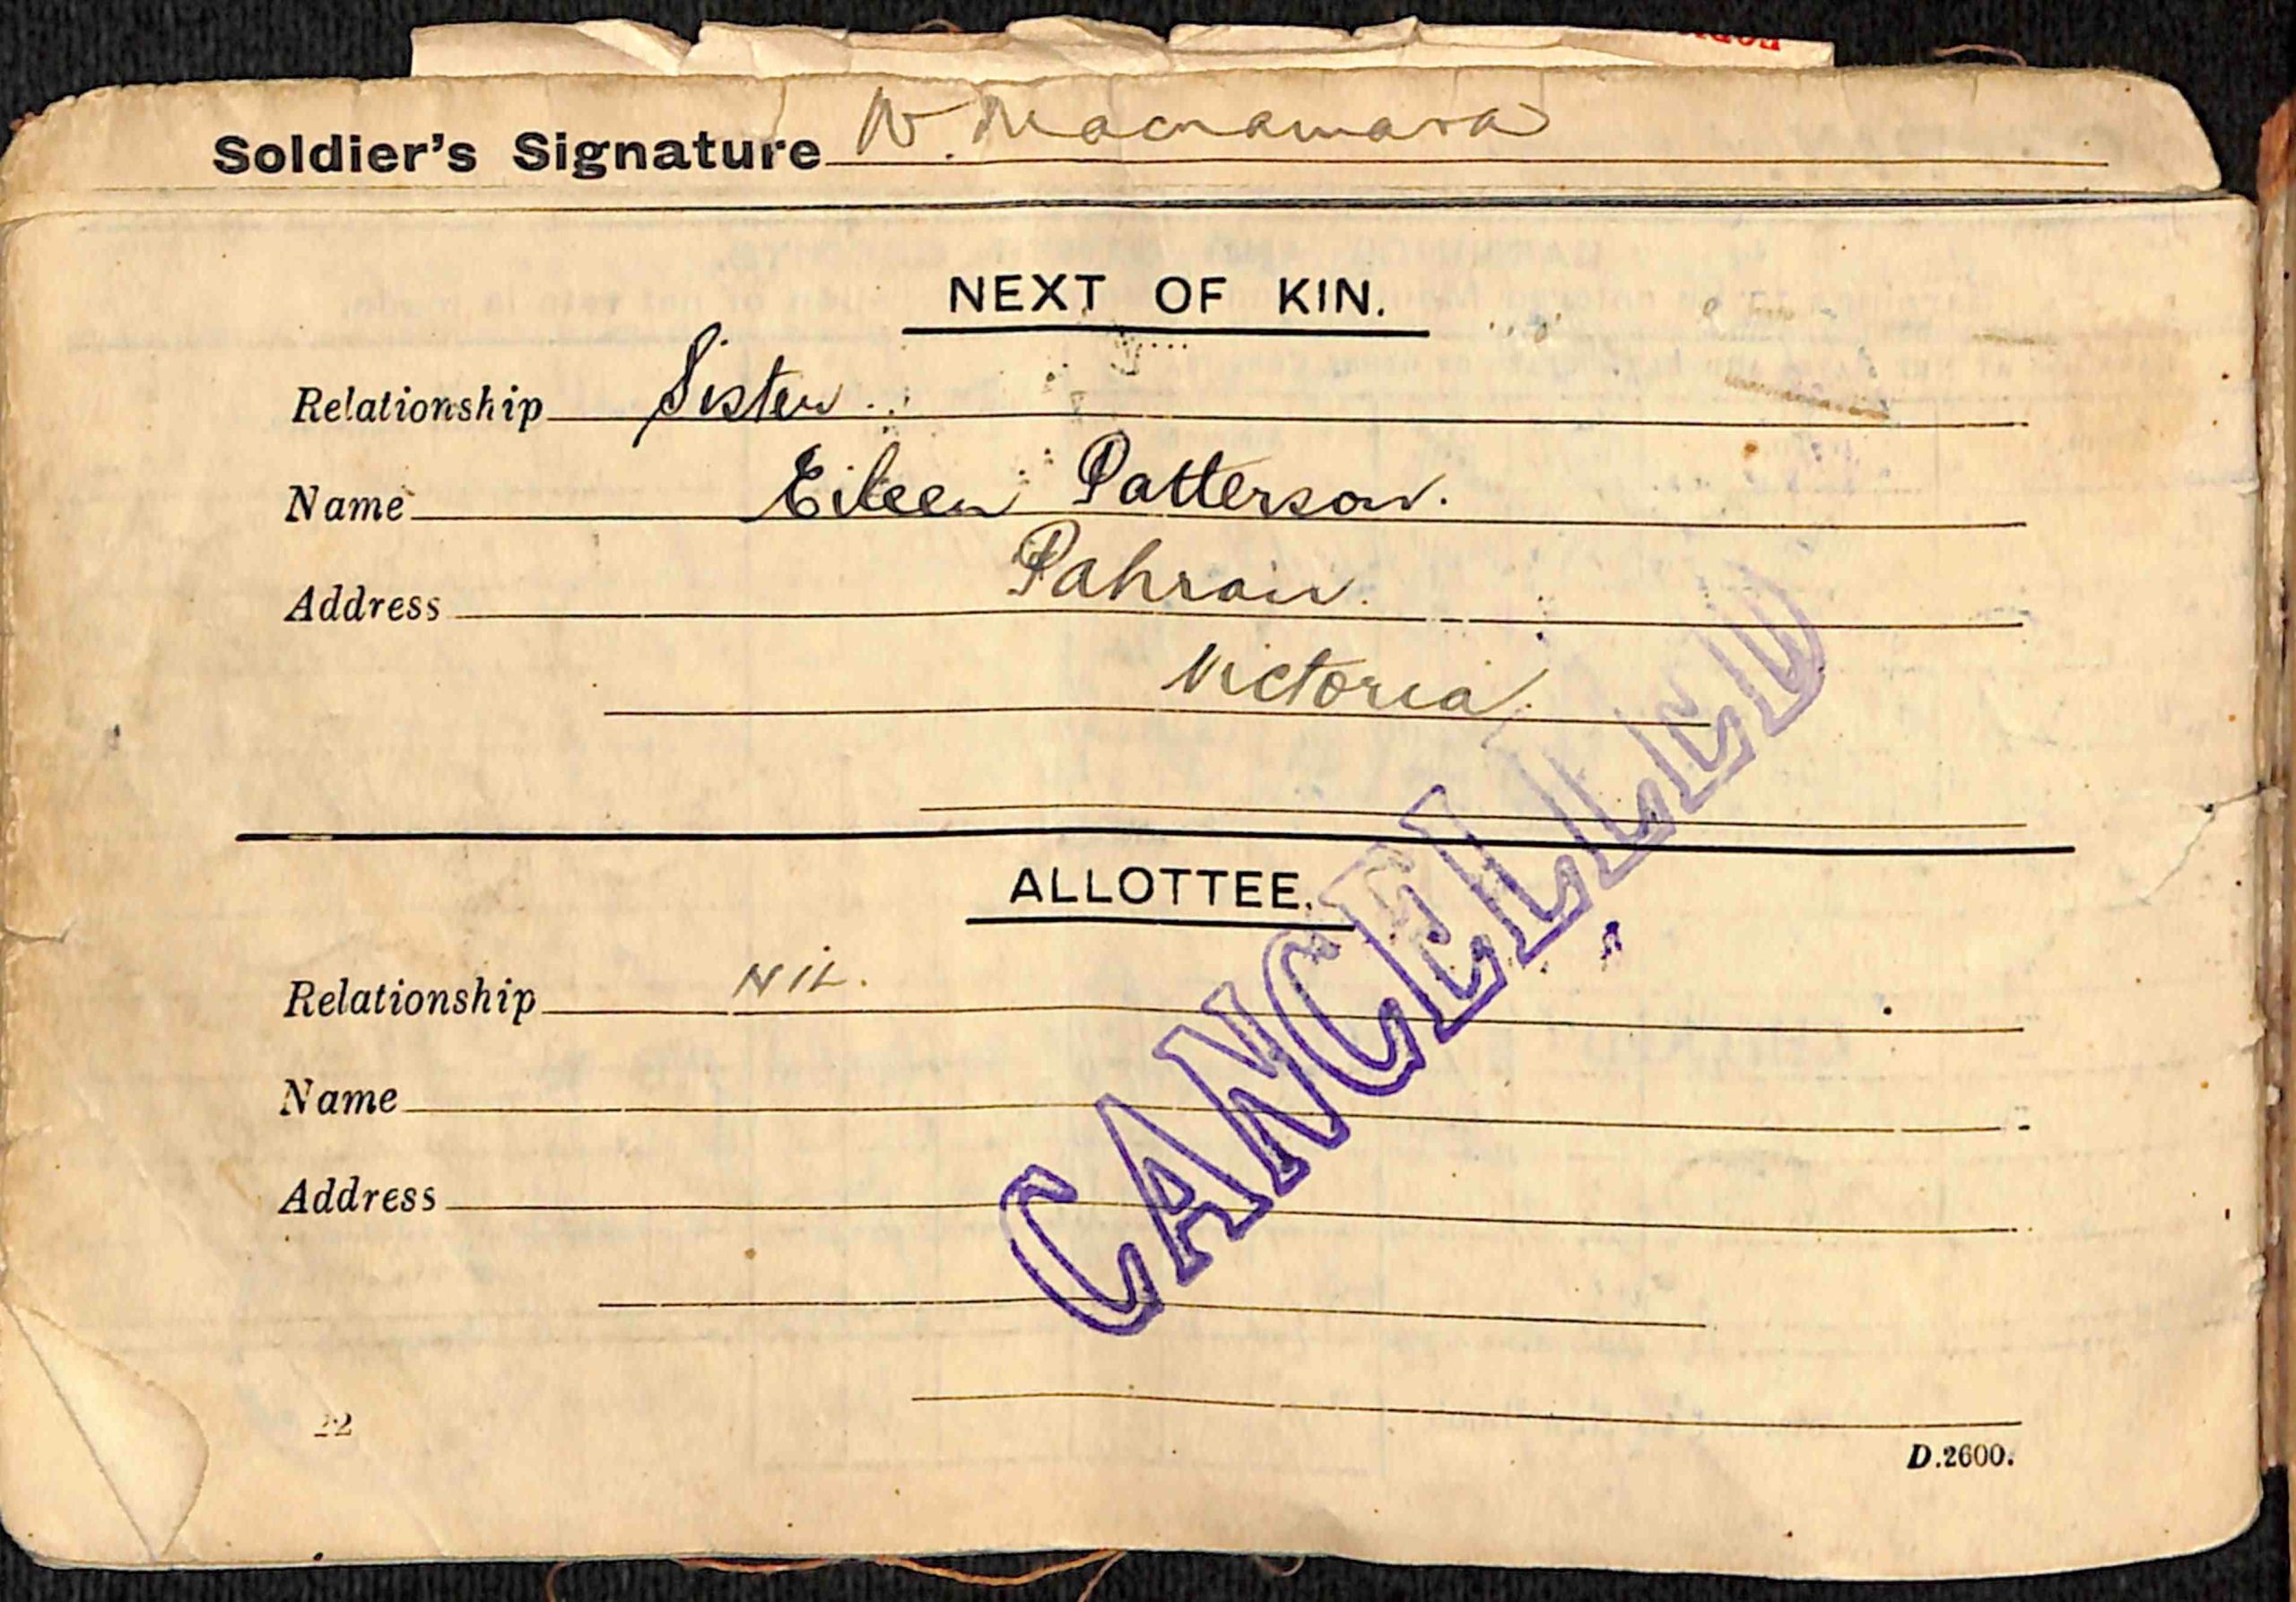 Soldier's Signature W. Macnamara
NEXT OF KIN.
Relationship Sister
Name Eileen Patterson.
Address Pahran.
Victoria.
ALLOTTEE.
Relationship NIL.
Name
Address
CANCELLED
22
D.2600.